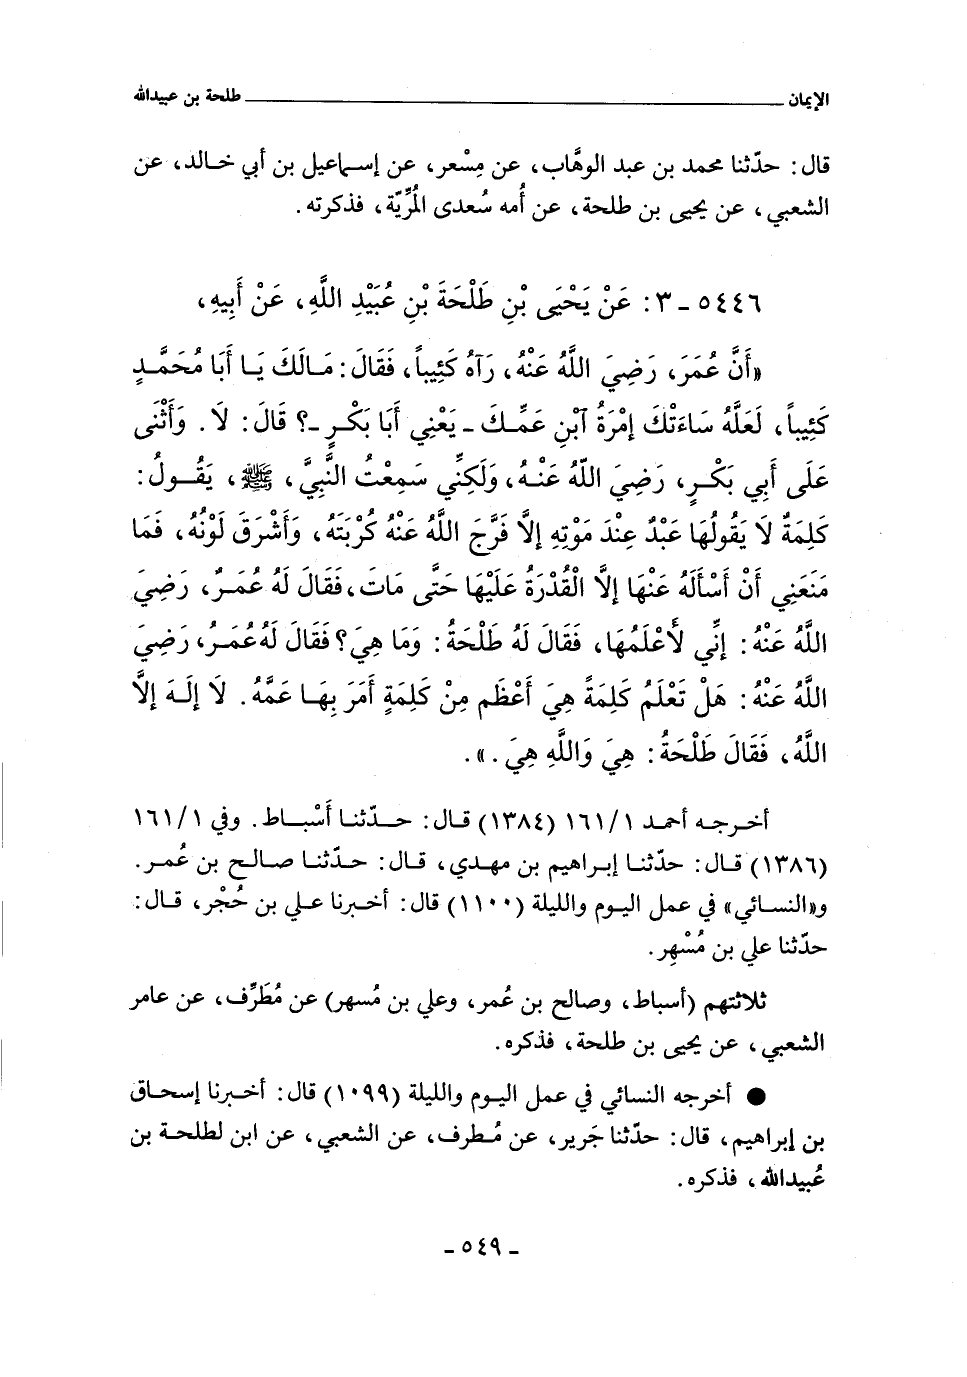 الإيمان ــــــــــ طلحة بن عبيدالله
قال: حدّثنا محمد بن عبد الوهَّاب، عن مِسْعر، عن إسماعيل بن أبي خالد، عن
الشعبي، عن يحيى بن طلحة، عن أُمه سُعدى المُرِّيّة، فذكرته.
٥٤٤٦ - ٣: عَنْ يَحْيَى بْنِ طَلْحَةَ بْنِ عُبَيْدِ اللَّهِ، عَنْ أَبِيهِ،
«أَنَّ عُمَرَ، رَضِيَ اللَّهُ عَنْهُ، رَآهُ كَئِيباً، فَقَالَ: مَالَكَ يَا أَبَا مُحَمَّدٍ
كَئِيباً، لَعَلَّهُ سَاءَتْكَ إِمْرَةُ آبْنِ عَمِّكَ - يَعْنِي أَبَا بَكْرٍ -؟ قَالَ: لَا. وَأَثْنَى
عَلَى أَبِي بَكْرٍ، رَضِيَ اللَّهُ عَنْهُ، وَلَكِنِّي سَمِعْتُ النَّبِيَّ، ﷺ، يَقُولُ:
كَلِمَةٌ لَا يَقُولُهَا عَبْدٌ عِنْدَ مَوْتِهِ إِلَّا فَرَّجَ اللَّهُ عَنْهُ كُرْبَتَهُ، وَأَشْرَقَ لَوْنُهُ، فَمَا
مَنَعَنِي أَنْ أَسْأَلَهُ عَنْهَا إِلَّا الْقُدْرَةُ عَلَيْهَا حَتَّى مَاتَ، فَقَالَ لَهُ عُمَرُ، رَضِيَ
اللَّهُ عَنْهُ: إِنِّي لَأَعْلَمُهَا، فَقَالَ لَهُ طَلْحَةُ: وَمَا هِيَ؟ فَقَالَ لَهُ عُمَرُ، رَضِيَ
اللَّهُ عَنْهُ: هَلْ تَعْلَمُ كَلِمَةً هِيَ أَعْظَمِ مِنْ كَلِمَةٍ أَمَرَ بِهَا عَمَّهُ. لَا إِلَهَ إِلَّا
اللَّهُ، فَقَالَ طَلْحَةُ: هِيَ وَاللَّهِ هِيَ.».
أخرجه أحمد ١/١٦١ (١٣٨٤) قال: حدّثنا أَسْباط. وفي ١/١٦١
(١٣٨٦) قال: حدّثنا إبراهيم بن مهدي، قال: حدّثنا صالح بن عُمر.
و«النسائي» في عمل اليوم والليلة (١١٠٠) قال: أخبرنا علي بن حُجْر، قال:
حدّثنا علي بن مُسْهِر.
ثلاثتهم (أسباط، وصالح بن عُمر، وعلي بن مُسهر) عن مُطَرِّف، عن عامر
الشعبي، عن يحيى بن طلحة، فذكره.
● أخرجه النسائي في عمل اليوم والليلة (١٠٩٩) قال: أخبرنا إسحاق
بن إبراهيم، قال: حدّثنا جَرير، عن مُطرف، عن الشعبي، عن ابن لطلحة بن
عُبيدالله، فذكره.
- ٥٤٩ -